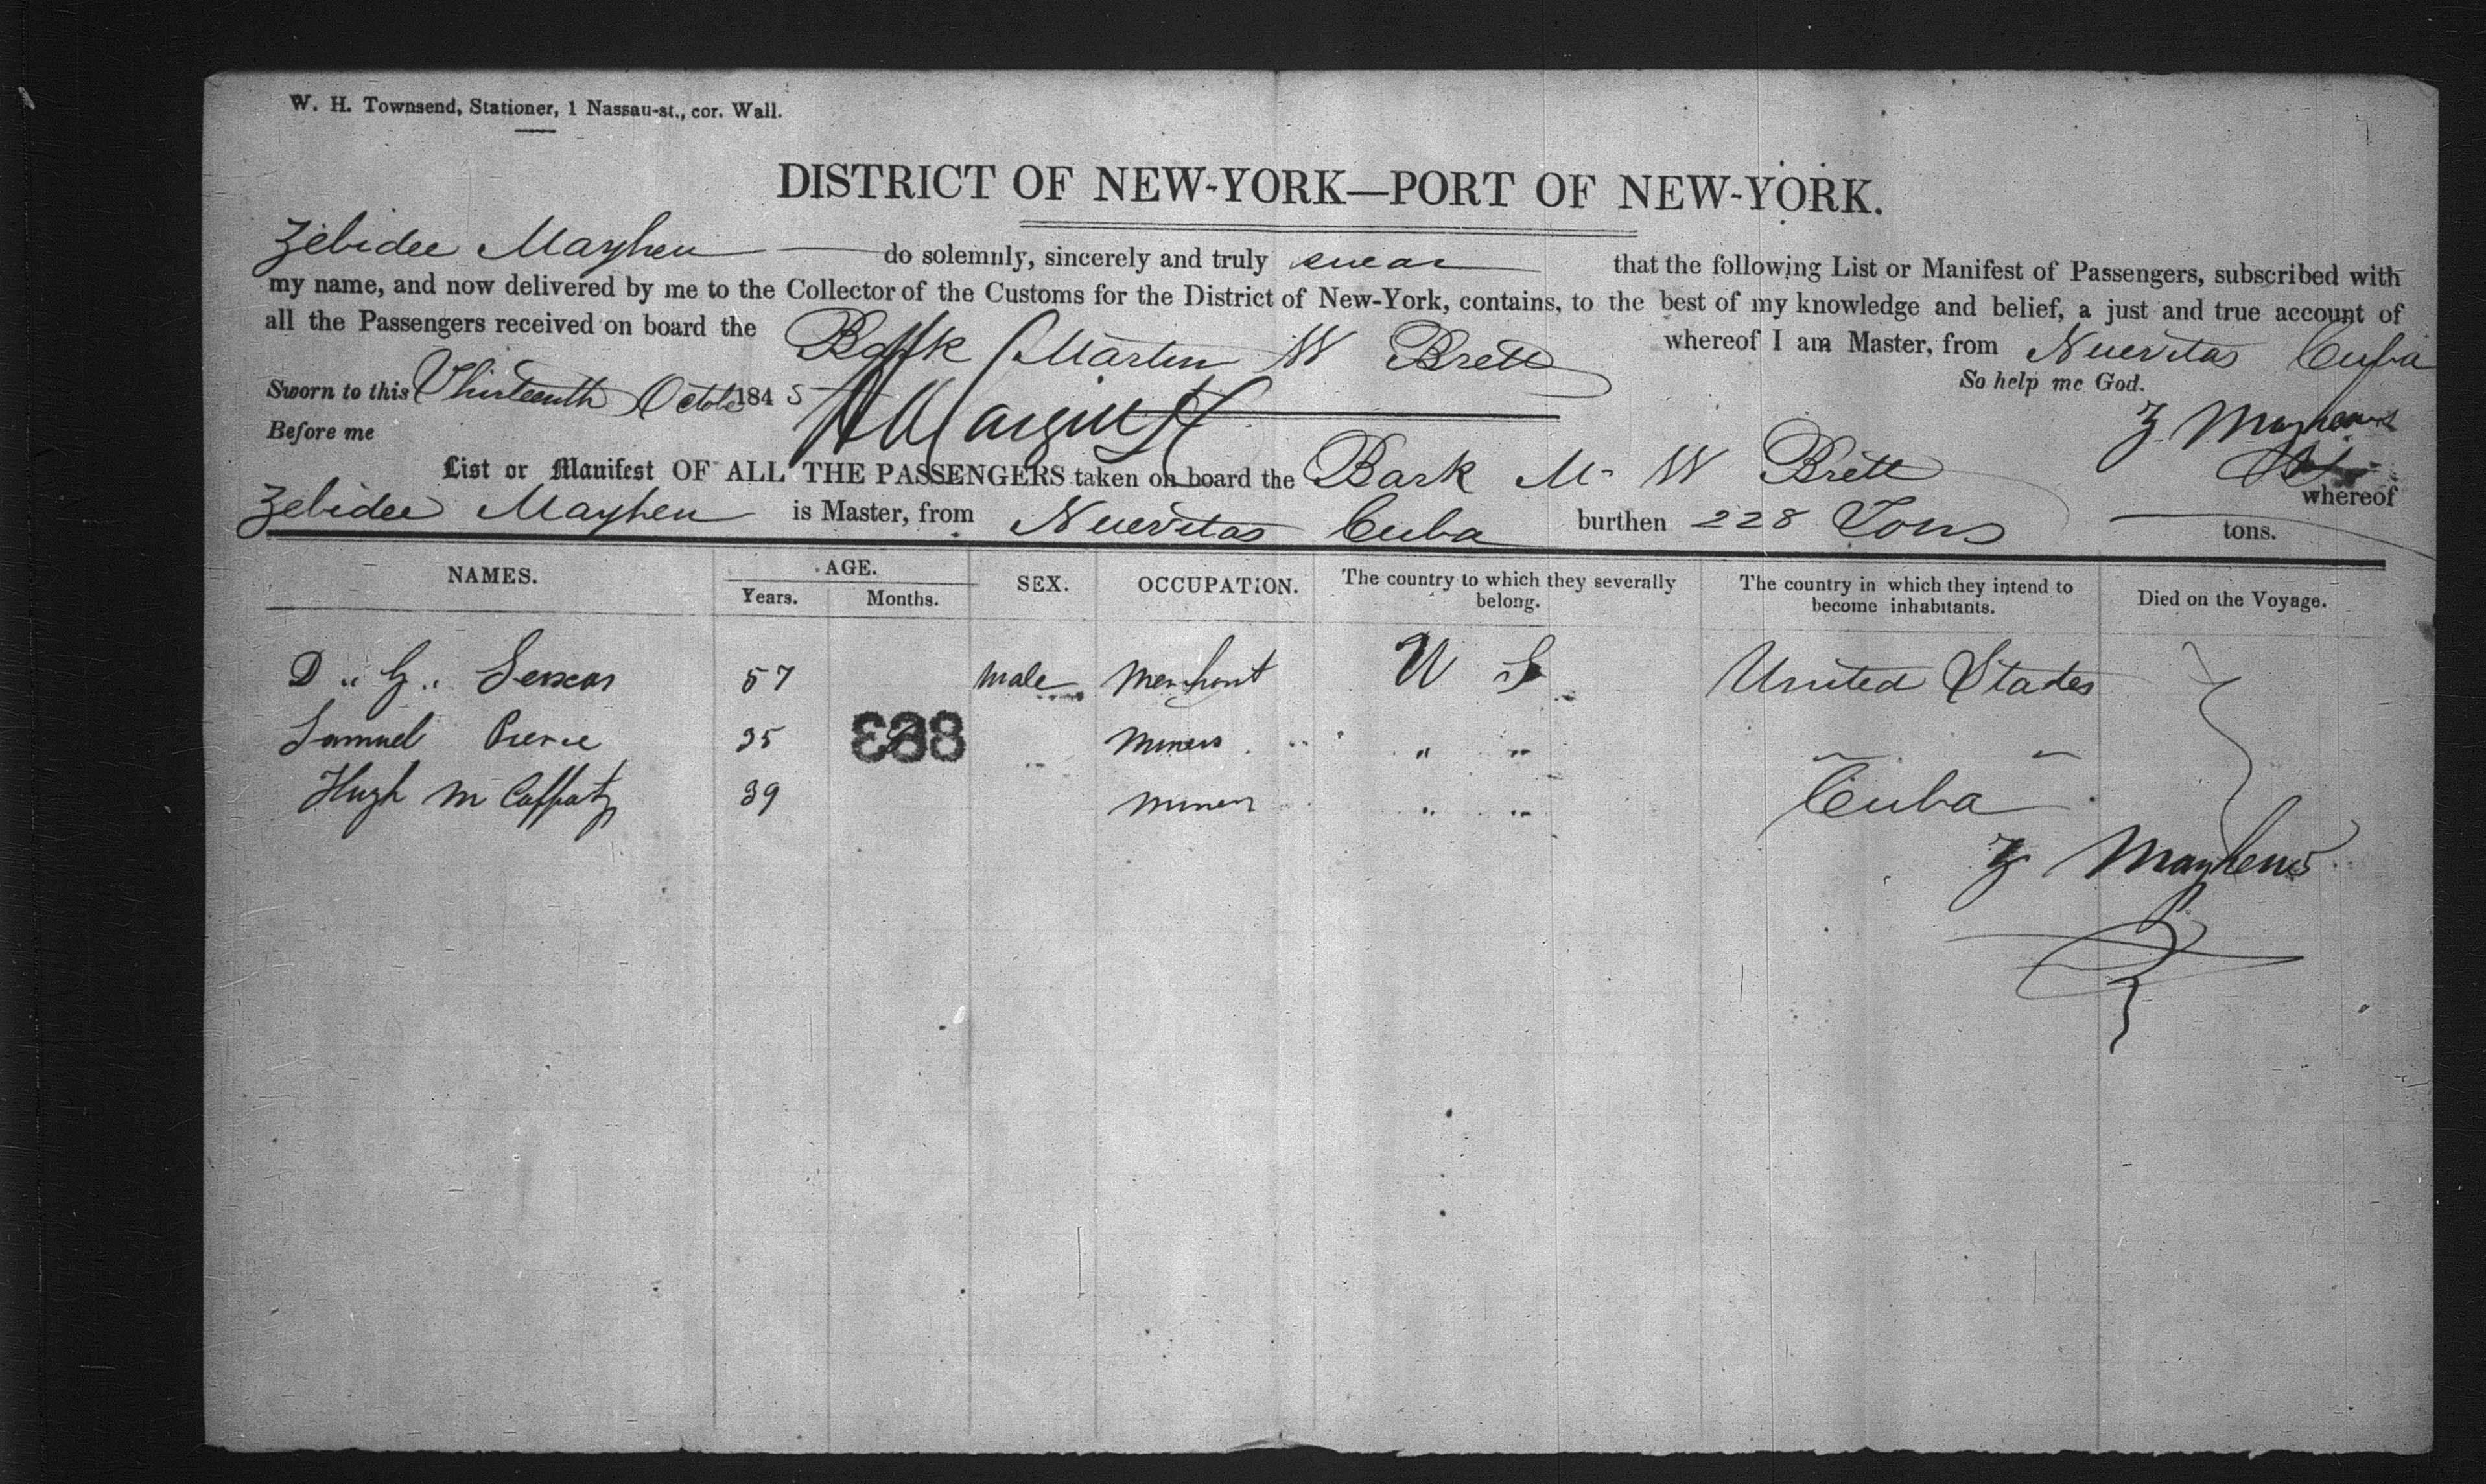 W. H. Townsend, Stationer, 1 Nassau-st., cor. Wall.
DISTRICT OF NEW-YORK—PORT OF NEW-YORK.
Zebidee Mayhew do solemnly, sincerely and truly swear that the following List or Manifest of Passengers, subscribed with
my name, and now delivered by me to the Collector of the Customs for the District of New-York, contains, to the best of my knowledge and belief, a just and true account of
all the Passengers received on board the Bark Martin W Brett whereof I am Master, from Nuevitas Cuba
So help me God.
Sworn to this Thirteenth Octob 1845
Z Mayhew
Before me
List or Manifest OF ALL THE PASSENGERS taken on board the Bark M W Brett whereof
Zebidee Mayhew is Master, from Nuevitas Cuba burthen 228 Tons tons.
NAMES. AGE. Years. Months. SEX. OCCUPATION. The country to which they severally belong. The country in which they intend to become inhabitants. Died on the Voyage.
D " G " 57 male Merchant U S United States
Samuel Pierce 35 Miners " " " "
Hugh Mc Caffaty 39 miner " " Cuba
Z Mayhew